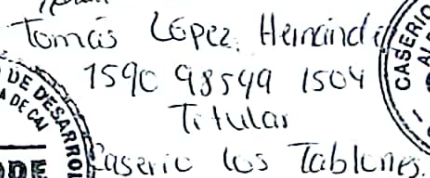 Tomás López Hernánde
1590 98549 1504
Titular
Caserío los Tablones.
CASERIO
DE DESARRO